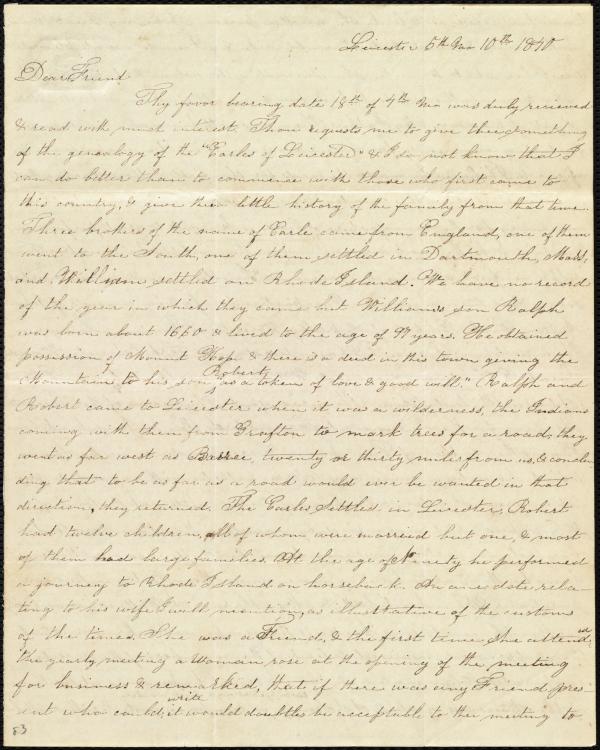 Leicester 5th Mo 10th 1840
Dear Friend
Thy favor bearing date 18th of 4th Mo was duly recieved
& read with much interest. Thou requests me to give thee something
of the genealogy of the "Earles of Leicester" & I do not know that I
can do better than to commence with those who first came to
this country, & give thee a little history of the family from that time.
Three brothers of the name of Earle came from England, one of them
went to the South, one of them settled in Dartmouth, Mass,
and William settled on Rhode Island. We have no record
of the year in which they came but William's son Ralph
was born about 1660 & lived to the age of 97 years. He obtained
possession of Mount Hope & there is a deed in this town giving the
Mountain to his son Robert "as a token of love & good will." Ralph and
Robert came to Leicester when it was a wilderness, the Indians
coming with them from Grafton to mark trees for a road, they
went as far west as Barre, twenty or thirty miles from us, & conclu-
ding that to be as far as a road would ever be wanted in that
direction, they returned. The Earles settled in Leicester, Robert
had twelve children, all of whom were married but one, & most
of them had large families. At the age of Ninety he performed
a journey to Rhode Island on horseback. An anecdote rela-
ting to his wife I will mention, as illustrative of the customs
of the times. She was a Friend, & the first time she attended
the yearly meeting a woman rose at the opening of the meeting
for business & remarked, that if there was any Friend pres-
ent who could write it would doubtles be acceptable to the meeting to
83